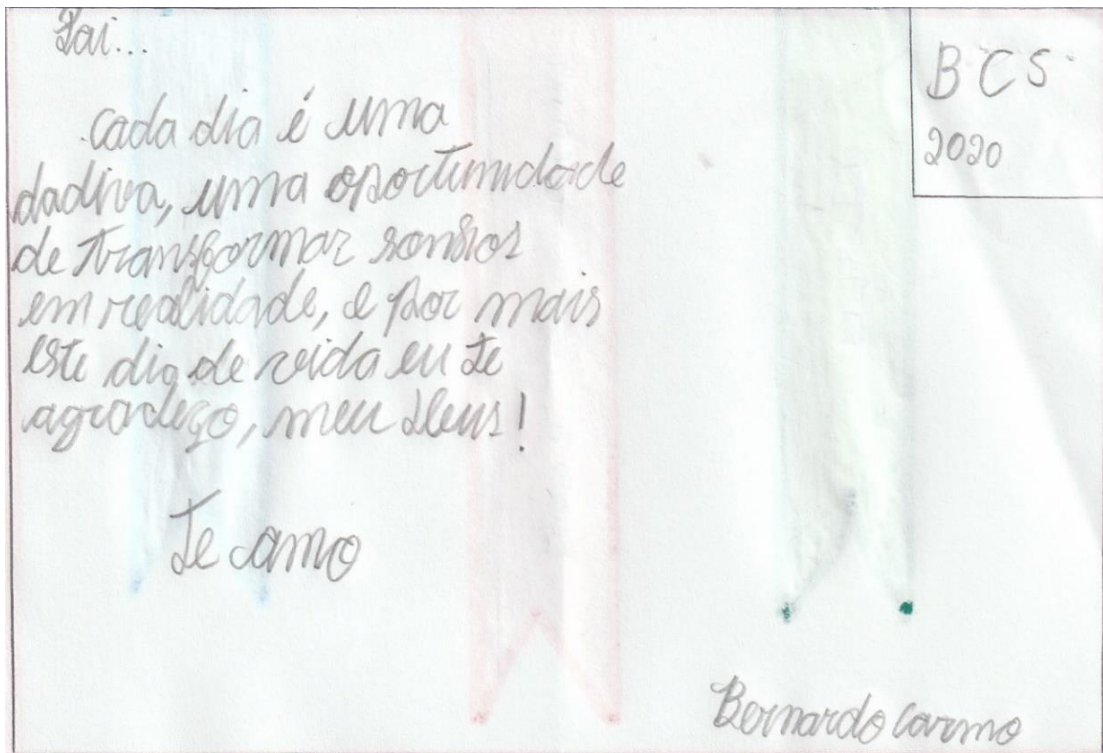 Pai...
BCS
2020
cada dia é uma
dadiva, uma oportunidade
de transformar sonhos
em realidade, e por mais
este dia de vida eu te
agradeço, meu Deus!
Te amo
Bernardo Carmo